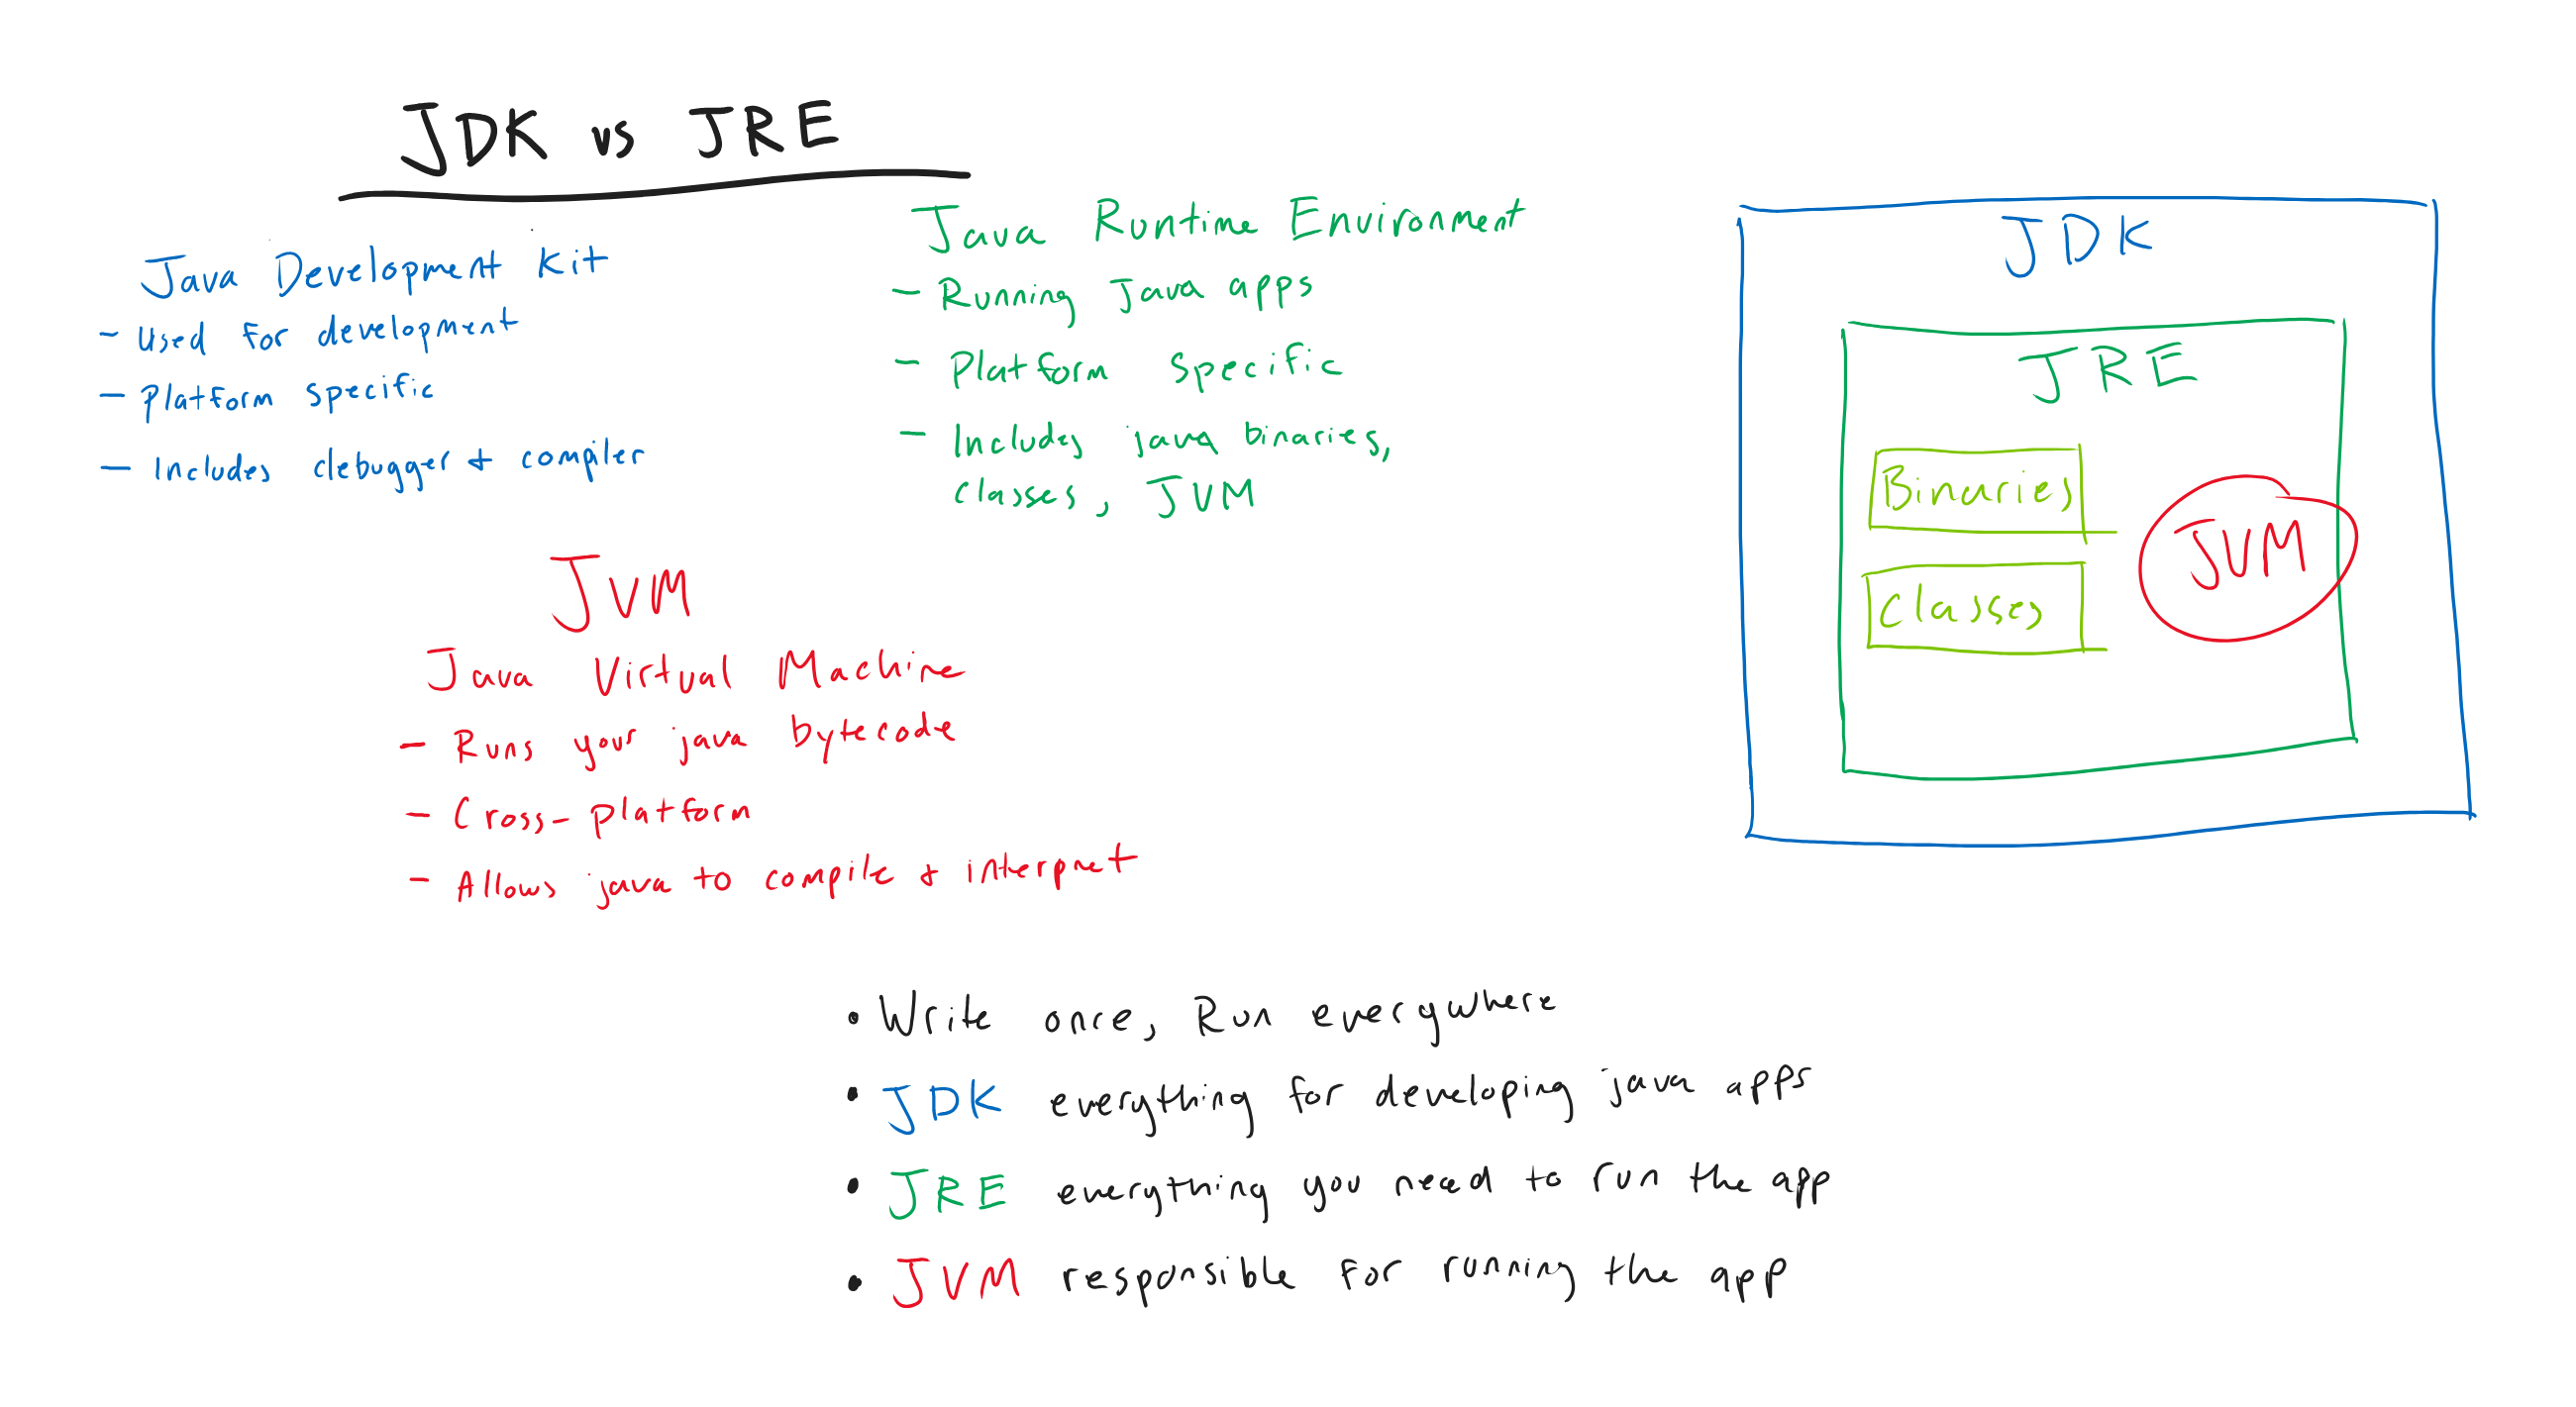 JDK vs JRE
Java Development Kit
- Used for development
- Platform specific
- Includes debugger + compiler
Java Runtime Environment
- Running Java apps
- Platform specific
- Includes java binaries,
classes, JVM
JVM
Java Virtual Machine
- Runs your java bytecode
- Cross-platform
- Allows java to compile + interpret
JDK
JRE
Binaries
Classes
JVM
• Write once, Run everywhere
• JDK everything for developing java apps
• JRE everything you need to run the app
• JVM responsible for running the app